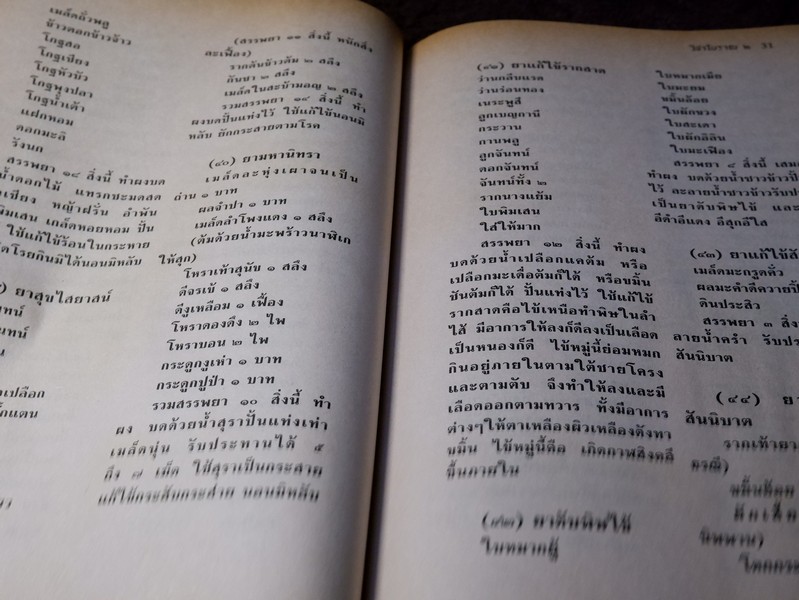 เมล็ดถั่วพลู
ข้าวตอกข้าวจ้าว
โกฐสอ
โกฐเขียง
โกฐหัวบัว
โกฐพุงปลา
โกฐน้ำเต้า
แฝกหอม
ดอกมะลิ
รังนก
สรรพยา ๑๔ สิ่งนี้ ทำผงบด
น้ำดอกไม้ แทรกชะมดสด
เขียง หญ้าฝรั่น อำพัน
พิมเสน เกล็ดหอยหอม ปั้น
ใช้แก้ไข้ร้อนในกระหาย
โรยกินมิได้นอนมิหลับ
ยาสุขไสยาสน์
เปลือก
(สรรพยา ๑๑ สิ่งนี้ หนักสิ่ง
ละเฟื้อง)
รากคันข้าวต้ม ๒ สลึง
กันชา ๒ สลึง
เมล็ดในสะบ้ามอญ ๒ สลึง
รวมสรรพยา ๑๔ สิ่งนี้ ทำ
ผงบดปั้นแท่งไว้ ใช้แก้ไข้นอนมิ
หลับ ยักกระสายตามโรค
(๔๑) ยามหานิทรา
เมล็ดละหุ่งเผาจนเป็น
ถ่าน ๑ บาท
ผลจำปา ๑ บาท
เมล็ดลำโพงแดง ๑ สลึง
(ต้มด้วยน้ำมะพร้าวนาฬิเก
ให้สุก)
โหราเท้าสุนัข ๑ สลึง
ดีจรเข้ ๑ สลึง
ดีงูเหลือม ๑ เฟื้อง
โหราดองดึง ๒ ไพ
โหราบอน ๒ ไพ
กระดูกงูเห่า ๑ บาท
กระดูกปูป่า ๑ บาท
รวมสรรพยา ๑๐ สิ่งนี้ ทำ
ผง บดด้วยน้ำสุราปั้นแท่งเท่า
เมล็ดนุ่น รับประทานได้ ๕
ถึง ๗ เม็ด ใช้สุราเป็นกระสาย
แก้ไข้กระสับกระส่าย นอนมิหลับ
31
(๔๒) ยาแก้ไข้รากสาด
ว่านกลีบแรด
ว่านร่อนทอง
เนระพูสี
ลูกเบญกานี
กระวาน
กานพลู
ลูกจันทน์
ดอกจันทน์
จันทน์ทั้ง ๒
รากนางแย้ม
ใบพิมเสน
ใส่ให้มาก
สรรพยา ๑๒ สิ่งนี้ ทำผง
บดด้วยน้ำเปลือกแคต้ม หรือ
เปลือกมะเดื่อต้มก็ได้ หรือขมิ้น
ชันต้มก็ได้ ปั้นแท่งไว้ ใช้แก้ไข้
รากสาดคือไข้เหนือทำพิษในลำ
ไส้ มีอาการให้ลงก็ดีลงเป็นเลือด
เป็นหนองก็ดี ไข้หมู่นี้ย่อมหมก
กินอยู่ภายในตามใต้ชายโครง
และตามตับ จึงทำให้ลงและมี
เลือดออกตามทวาร ทั้งมีอาการ
ต่างๆให้ตาเหลืองผิวเหลืองดังทา
ขมิ้น ไข้หมู่นี้คือ เกิดกาฬสิงคลี
ขึ้นภายใน
ยาต้นพิษไข้
ใบหมากผู้
ใบหมากเมีย
ใบมะยม
ขมิ้นอ้อย
ใบผักขวง
ใบสะเดา
ใบมะเฟือง
สรรพยา ๘ สิ่งนี้ เสมอ
ทำผง บดด้วยน้ำซาวข้าวปั้น
ไว้ ละลายน้ำซาวข้าวรับประ
เป็นยาดับพิษไข้ และ
อีดำอีแดง อีสุกอีใส
(๔๓) ยาแก้ไข้สั
เมล็ดมะกรูดคั่ว
ผลมะคำดีควายปิ้
ดินประสิว
สรรพยา ๓ สิ่ง
ลายน้ำครำ รับประ
สันนิบาต
(๔๔) ยา
สันนิบาต
รากเท้ายา
ขมิ้นอ้อย